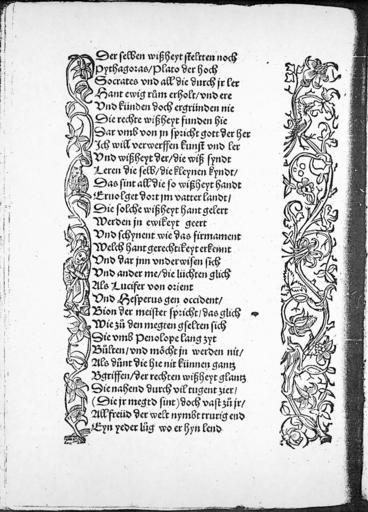 Der selben wißheyt stelten noch
Pythagoras/Plato der hoch
Socrates vnd all die durch jr ler
Hant ewig rům erholt/vnd ere
Vnd künden doch ergründen nie
Die rechte wißheyt funden hie
Dar vmb von jn spricht gott der her
Jch will verwerffen kunst vnd ler
Vnd wißheyt der/die wiß syndt
Leren die selb/die kleynen kyndt/
Das sint all die so wißheyt handt
Eruolget dort jm vatter landt/
Die solche wißheyt hant gelert
Werden jn ewikeyt geert
Vnd schynent wie das firmament
Welch hant gerechtikeyt erkennt
Vnd dar jnn vnderwisen sich
Vnd ander me/die lüchten glich
Als Lucifer von orient
Vnd Hesperus gen occident/
Bion der meister spricht/das glich
Wie zů den megten gselten sich
Die vmb Penolope lang zyt
Bůlten/vnd möcht jn werden nit/
Als důnt die hie nit künnen gantz
Bgriffen/der rechten wißheyt glantz
Die nahend durch vil tugent zier/
(Die jr megtd sint) doch vast zů jr/
All freüd der welt nymbt trurig end
Eyn yeder lůg wo er hyn lend